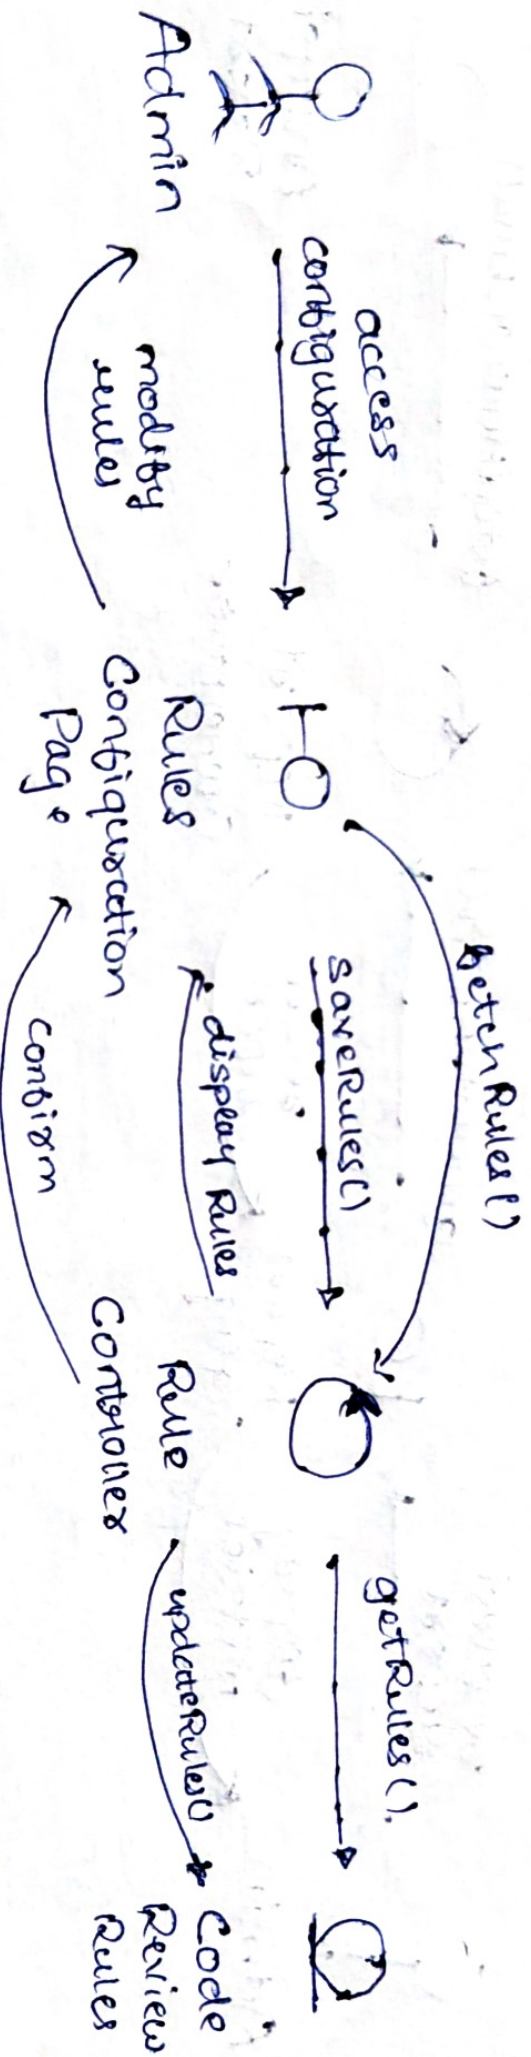 Admin
access
configuration
modify
rules
Rules
Configuration
Page
fetchRules()
saveRules()
display Rules
confirm
Rule
Controller
getRules().
updateRules()
Code
Review
Rules